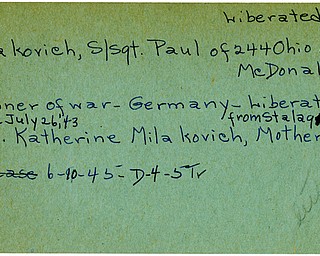 Liberated
akovich, S/Sgt. Paul of 244 Ohio
McDonal
oner of war- Germany- Liberat
July 26, '43 from Stalag
. Katherine Milakovich, Mother
ease 6-10-45- D-4-5 Tr